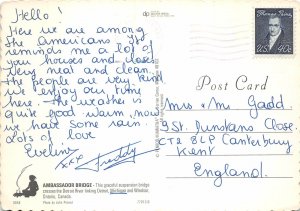 Hello!
Here we are among
the americans. It
reminds me a lot of
you houses and closes
very neat and clean.
the people are very nice
we enjoy our time
here - the weather is
quite good warm, now
we have some rain.
Lots of love
Eveline
xxx Freddy
AMBASSADOR BRIDGE - This graceful suspension bridge
crosses the Detroit River linking Detroit, Michigan and Windsor,
Ontario, Canada.
Thomas Paine
U.S. 40c
Post Card
Mrs & Mr Gadd
9 St. Dunstans Close
CT2 8LP Canterbury
Kent
England.